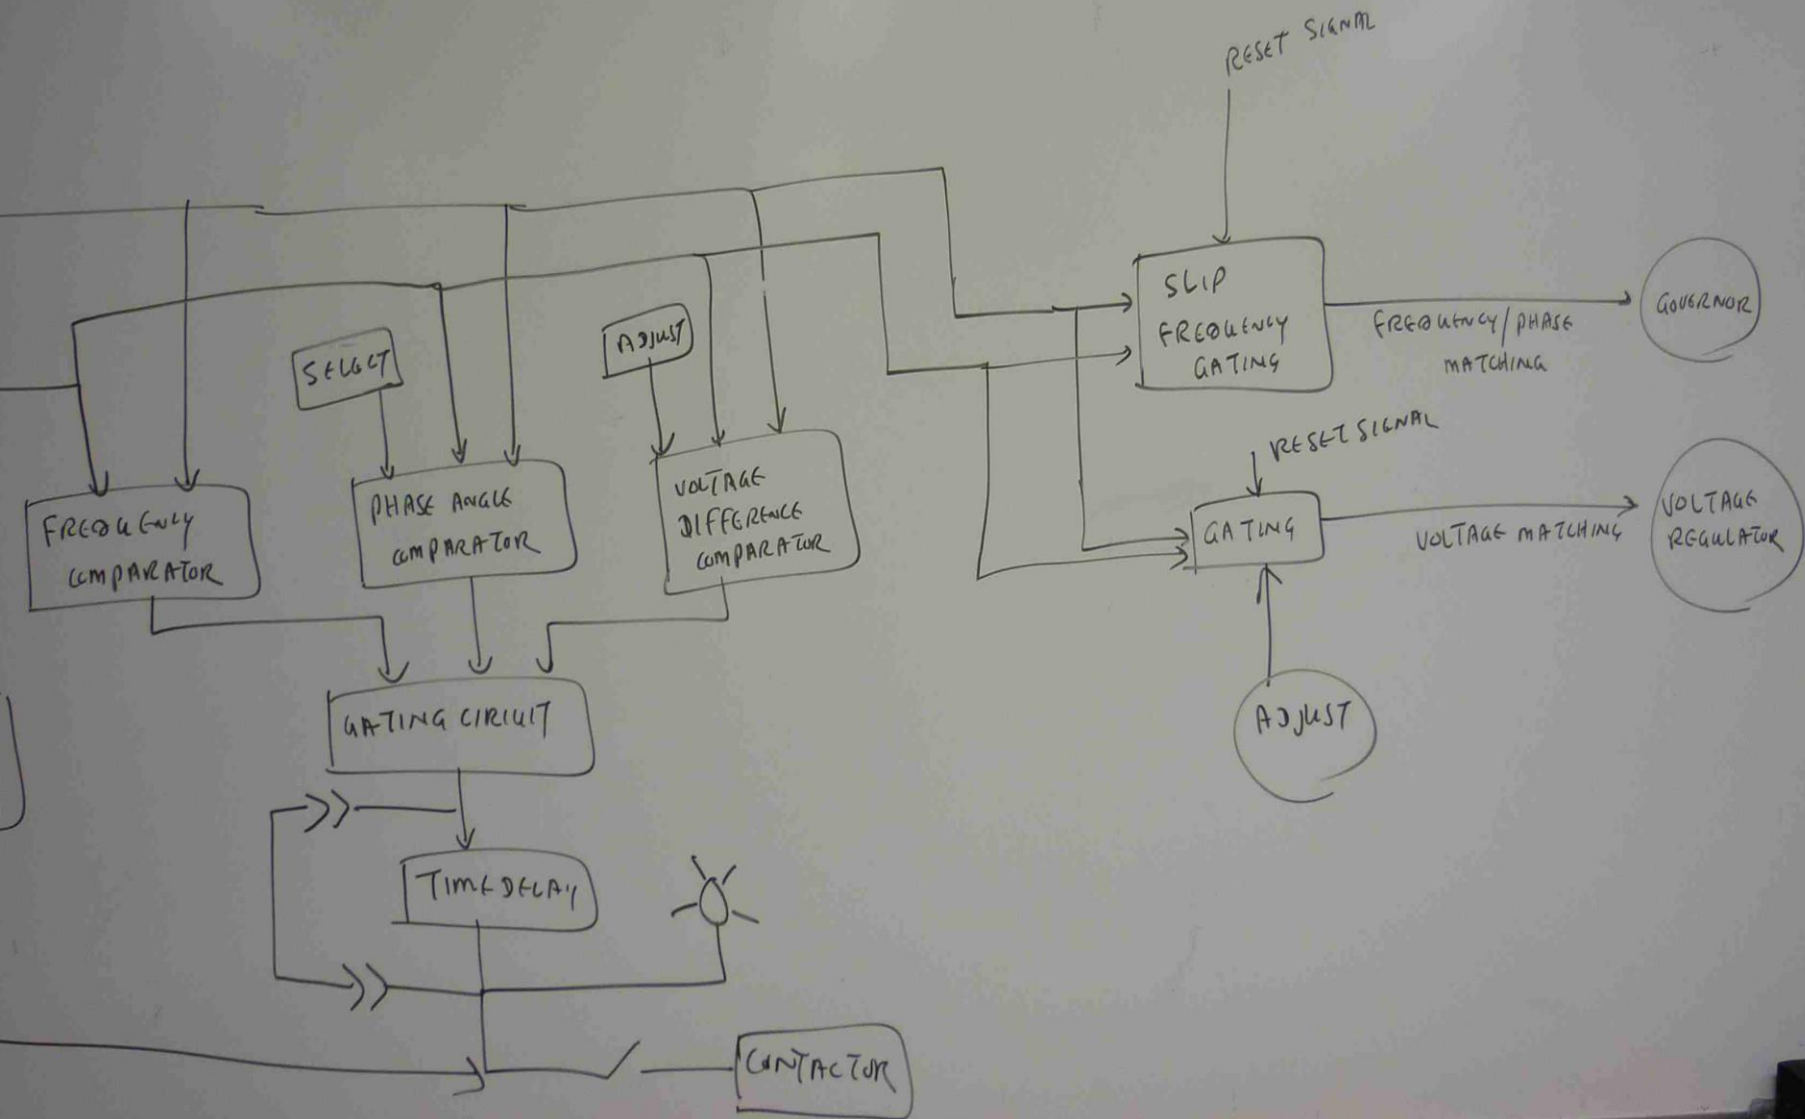 RESET SIGNAL
SLIP
FREQUENCY
GATING
FREQUENCY/PHASE
MATCHING
GOVERNOR
SELECT
ADJUST
RESET SIGNAL
FREQUENCY
COMPARATOR
PHASE ANGLE
COMPARATOR
VOLTAGE
DIFFERENCE
COMPARATOR
GATING
VOLTAGE MATCHING
VOLTAGE
REGULATOR
GATING CIRIUIT
ADJUST
TIME DELAY
CONTACTOR